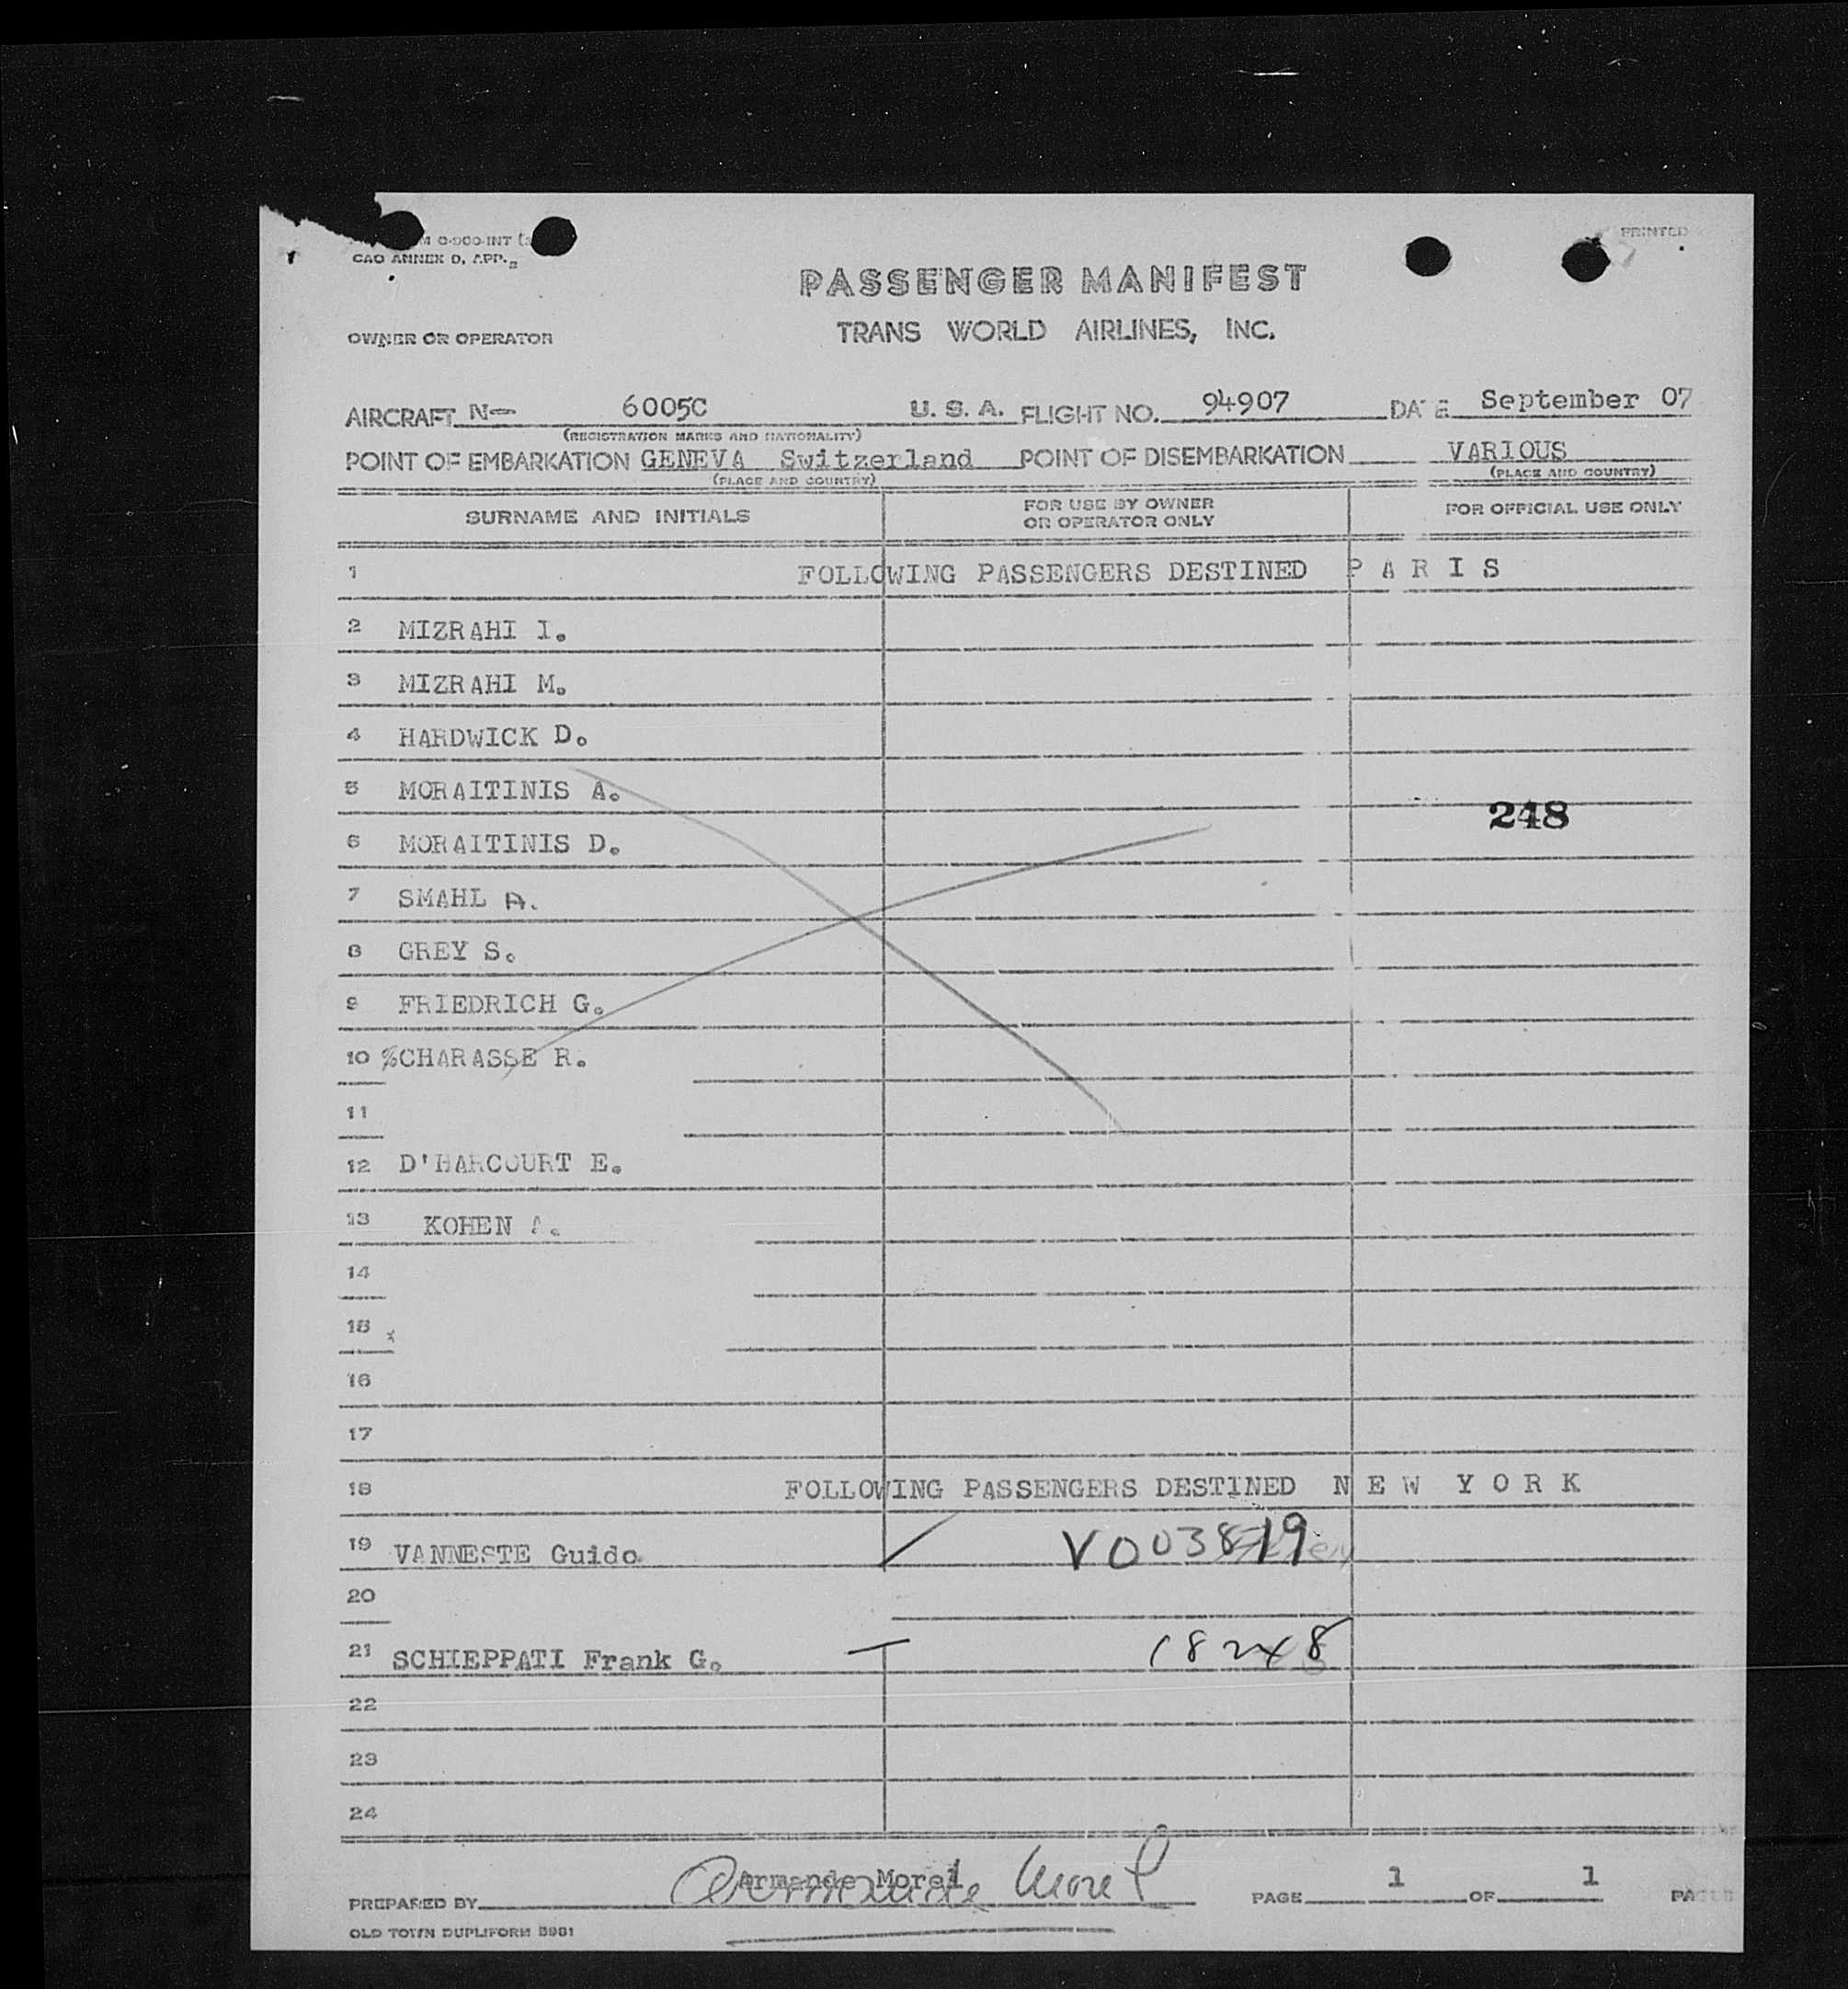 CAO ANNEX D, APP.
PRINTED
PASSENGER MANIFEST
OWNER OR OPERATOR
TRANS WORLD AIRLINES, INC.
AIRCRAFT N- 6005C U. S. A. FLIGHT NO. 94907 DATE September 07
(REGISTRATION MARKS AND NATIONALITY)
POINT OF EMBARKATION GENEVA Switzerland POINT OF DISEMBARKATION VARIOUS
(PLACE AND COUNTRY) (PLACE AND COUNTRY)
SURNAME AND INITIALS FOR USE BY OWNER OR OPERATOR ONLY FOR OFFICIAL USE ONLY
1 FOLLOWING PASSENGERS DESTINED P A R I S
2 MIZRAHI I.
3 MIZRAHI M.
4 HARDWICK D.
5 MORAITINIS A.
248
6 MORAITINIS D.
7 SMAHL A.
8 GREY S.
9 FRIEDRICH G.
10 %CHARASSE R.
11
12 D'HARCOURT E.
13 KOHEN A.
14
15
16
17
18 FOLLOWING PASSENGERS DESTINED N E W Y O R K
19 VANNESTE Guido V003819
20
21 SCHIEPPATI Frank G. 18248
22
23
24
PREPARED BY Armande Morel Armande Morel PAGE 1 OF 1
OLD TOWN DUPLIFORM B981